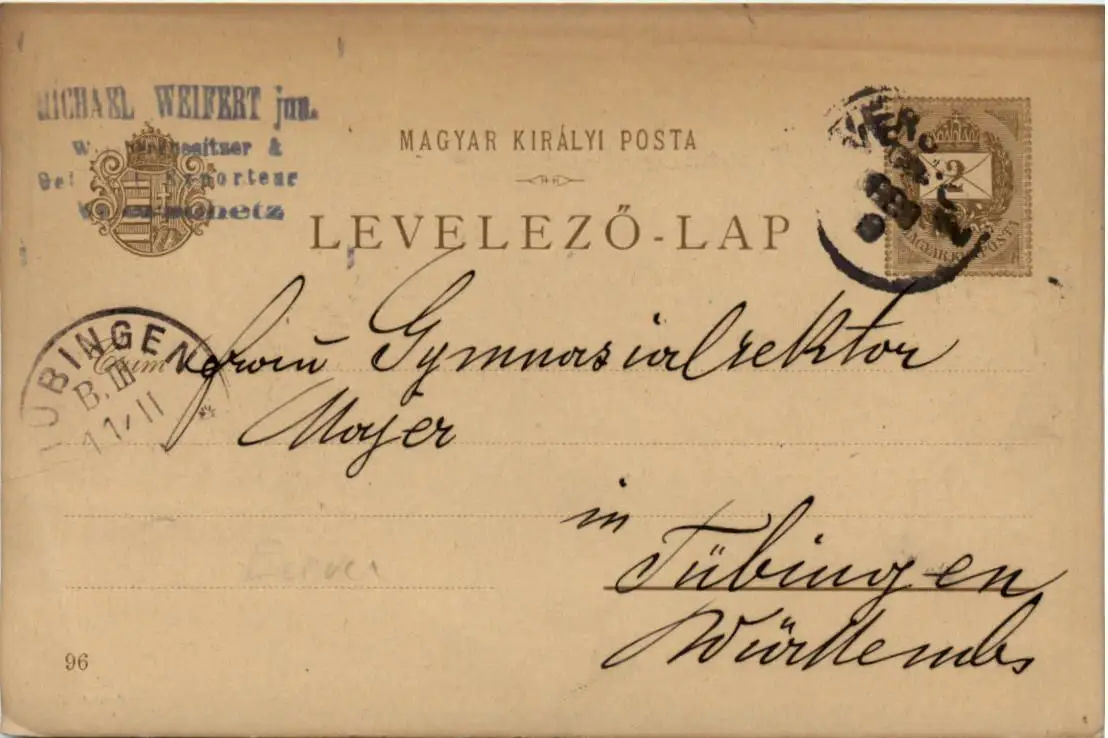 MICHAEL WEIFERT jun.
&
Exporteur
MAGYAR KIRÁLYI POSTA
LEVELEZŐ-LAP
2
MAGYAR KIR. POSTA
TÜBINGEN
B.III
11/11
Czim
Frau Gymnasialrektor
Mayer
in
Tübingen
Württembg
96